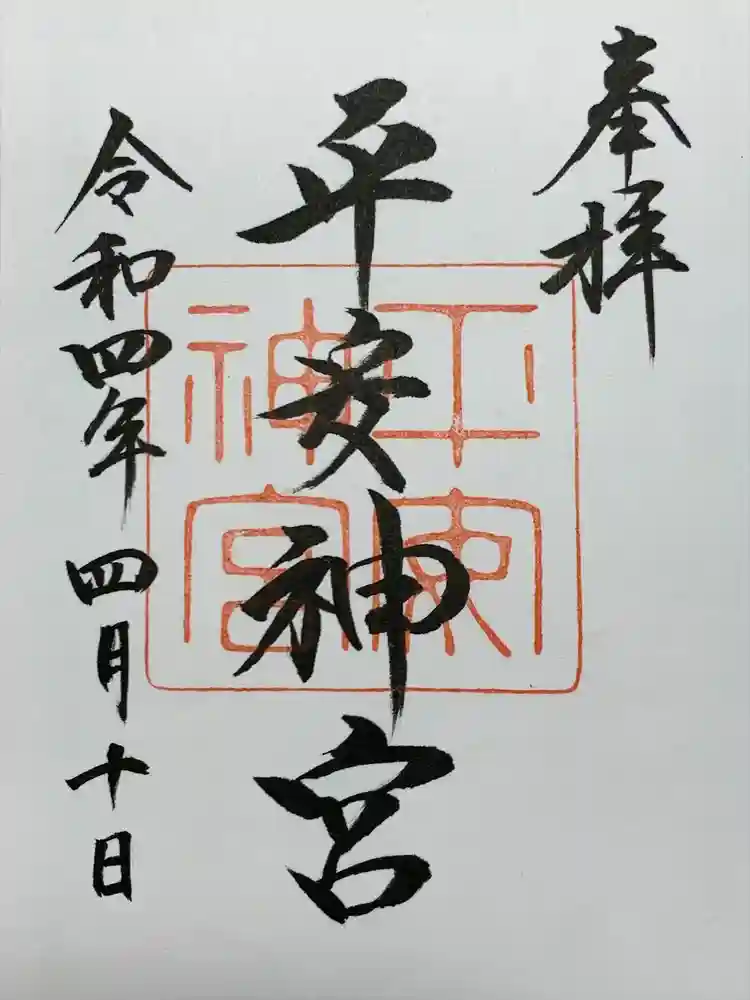 奉拝
平安神宮
平安神宮
令和四年四月十日